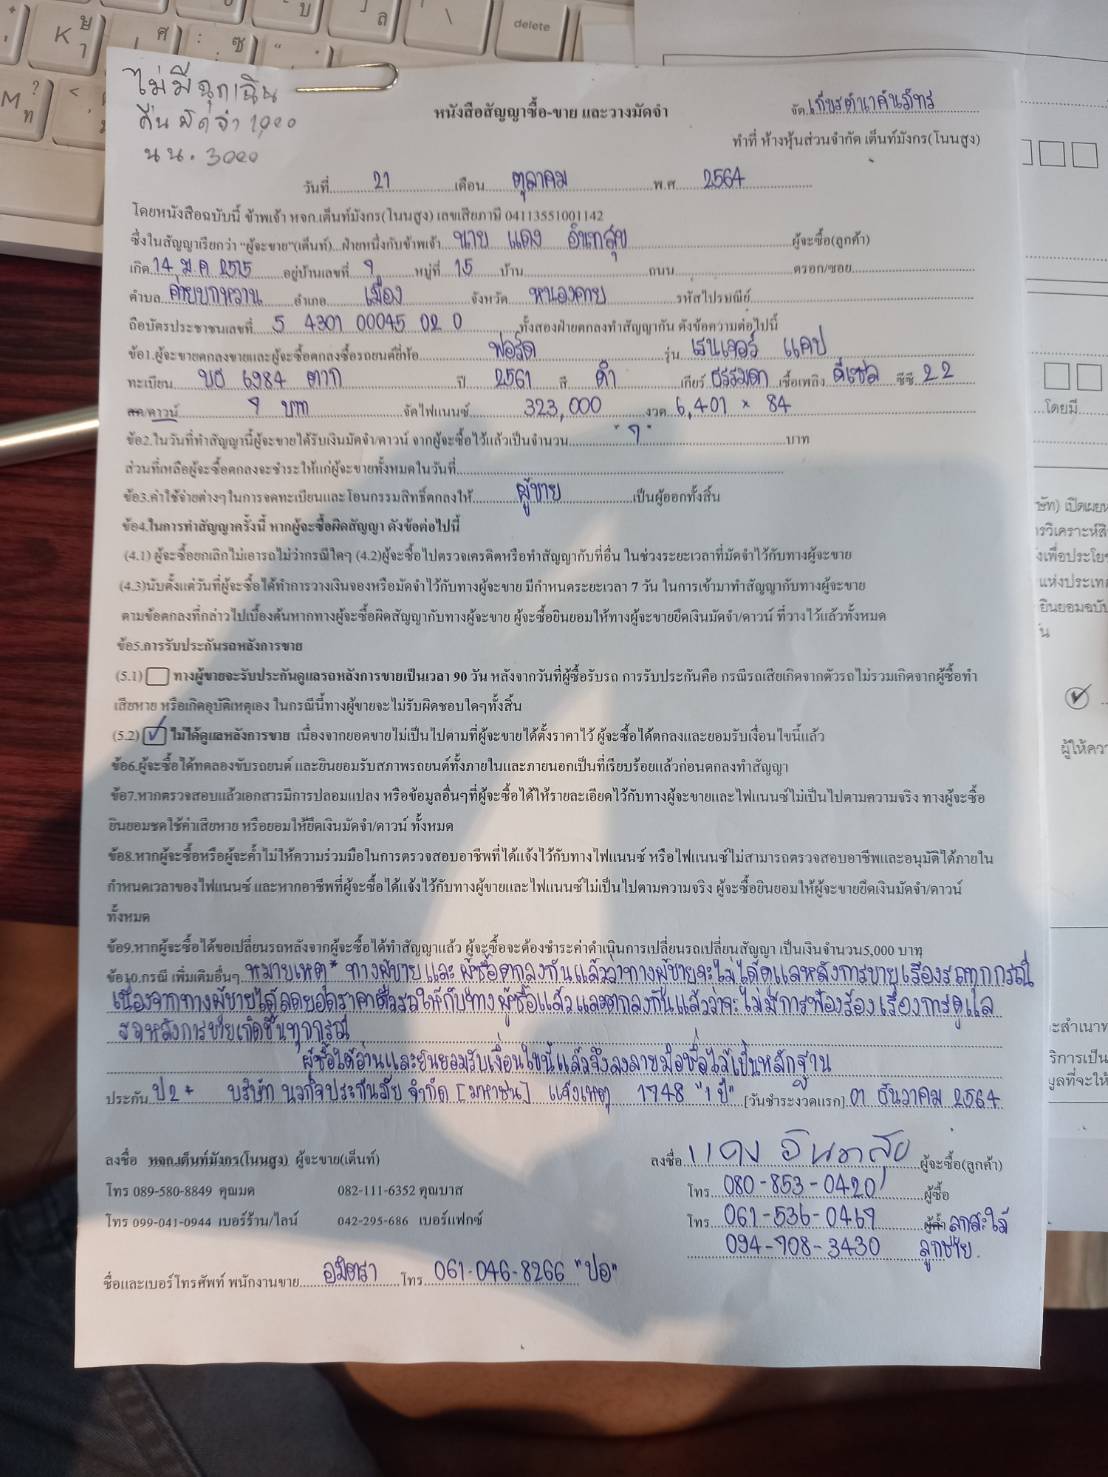 ไม่มีฉุกเฉิน
คืนมัดจำ 1,000
นน. 3000
จัด เกียรตินาคินภัทร
หนังสือสัญญาซื้อ-ขาย และวางมัดจำ
ทำที่ ห้างหุ้นส่วนจำกัด เต็นท์มังกร(โนนสูง)
วันที่ 21 เดือน ตุลาคม พ.ศ 2564
โดยหนังสือฉบับนี้ ข้าพเจ้า หจก.เต็นท์มังกร(โนนสูง) เลขเสียภาษี 04113551001142
ซึ่งในสัญญาเรียกว่า "ผู้จะขาย"(เต็นท์)...ฝ่ายหนึ่งกับข้าพเจ้า นาย แดง อินทสุข ผู้จะซื้อ(ลูกค้า)
เกิด 14 ม.ค 2515 อยู่บ้านเลขที่ 9 หมู่ที่ 15 บ้าน ถนน ตรอก/ซอย
ตำบล ค่ายบกหวาน อำเภอ เมือง จังหวัด หนองคาย รหัสไปรษณีย์
ถือบัตรประชาชนเลขที่ 5 4301 00045 02 0 ทั้งสองฝ่ายตกลงทำสัญญากัน ดังข้อความต่อไปนี้
ข้อ1.ผู้จะขายตกลงขายและผู้จะซื้อตกลงซื้อรถยนต์ยี่ห้อ ฟอร์ด รุ่น เรนเจอร์ แคป
ทะเบียน บธ 6984 ตาก ปี 2561 สี ดำ เกียร์ ธรรมดา เชื้อเพลิง ดีเซล ซีซี 2.2
สด/ดาวน์ 9 บาท จัดไฟแนนซ์ 323,000 งวด 6,401 × 84
ข้อ2.ในวันที่ทำสัญญานี้ผู้จะขายได้รับเงินมัดจำ/ดาวน์ จากผู้จะซื้อไว้แล้วเป็นจำนวน "9" บาท
ส่วนที่เหลือผู้จะซื้อตกลงจะชำระให้แก่ผู้จะขายทั้งหมดในวันที่
ข้อ3.ค่าใช้จ่ายต่างๆในการจดทะเบียนและโอนกรรมสิทธิ์ตกลงให้ ผู้ขาย เป็นผู้ออกทั้งสิ้น
ข้อ4.ในการทำสัญญาครั้งนี้ หากผู้จะซื้อผิดสัญญา ดังข้อต่อไปนี้
(4.1) ผู้จะซื้อยกเลิกไม่เอารถไม่ว่ากรณีใดๆ (4.2)ผู้จะซื้อไปตรวจเครดิตหรือทำสัญญากับที่อื่น ในช่วงระยะเวลาที่มัดจำไว้กับทางผู้จะขาย
(4.3)นับตั้งแต่วันที่ผู้จะซื้อได้ทำการวางเงินจองหรือมัดจำไว้กับทางผู้จะขาย มีกำหนดระยะเวลา 7 วัน ในการเข้ามาทำสัญญากับทางผู้จะขาย
ตามข้อตกลงที่กล่าวไปเบื้องต้นหากทางผู้จะซื้อผิดสัญญากับทางผู้จะขาย ผู้จะซื้อยินยอมให้ทางผู้จะขายยึดเงินมัดจำ/ดาวน์ ที่วางไว้แล้วทั้งหมด
ข้อ5.การรับประกันรถหลังการขาย
(5.1) ทางผู้ขายจะรับประกันดูแลรถหลังการขายเป็นเวลา 90 วัน หลังจากวันที่ผู้ซื้อรับรถ การรับประกันคือ กรณีรถเสียเกิดจากตัวรถไม่รวมเกิดจากผู้ซื้อทำ
เสียหาย หรือเกิดอุบัติเหตุเอง ในกรณีนี้ทางผู้ขายจะไม่รับผิดชอบใดๆทั้งสิ้น
(5.2) ✓ ไม่ได้ดูแลหลังการขาย เนื่องจากยอดขายไม่เป็นไปตามที่ผู้จะขายได้ตั้งราคาไว้ ผู้จะซื้อได้ตกลงและยอมรับเงื่อนไขนี้แล้ว
ข้อ6.ผู้จะซื้อได้ทดลองขับรถยนต์ และยินยอมรับสภาพรถยนต์ทั้งภายในและภายนอกเป็นที่เรียบร้อยแล้วก่อนตกลงทำสัญญา
ข้อ7.หากตรวจสอบแล้วเอกสารมีการปลอมแปลง หรือข้อมูลอื่นๆที่ผู้จะซื้อได้ให้รายละเอียดไว้กับทางผู้จะขายและไฟแนนซ์ไม่เป็นไปตามความจริง ทางผู้จะซื้อ
ยินยอมชดใช้ค่าเสียหาย หรือยอมให้ยึดเงินมัดจำ/ดาวน์ ทั้งหมด
ข้อ8.หากผู้จะซื้อหรือผู้จะค้ำไม่ให้ความร่วมมือในการตรวจสอบอาชีพที่ได้แจ้งไว้กับทางไฟแนนซ์ หรือไฟแนนซ์ไม่สามารถตรวจสอบอาชีพและอนุมัติได้ภายใน
กำหนดเวลาของไฟแนนซ์ และหากอาชีพที่ผู้จะซื้อได้แจ้งไว้กับทางผู้ขายและไฟแนนซ์ไม่เป็นไปตามความจริง ผู้จะซื้อยินยอมให้ผู้จะขายยึดเงินมัดจำ/ดาวน์
ทั้งหมด
ข้อ9.หากผู้จะซื้อได้ขอเปลี่ยนรถหลังจากผู้จะซื้อได้ทำสัญญาแล้ว ผู้จะซื้อจะต้องชำระค่าดำเนินการเปลี่ยนรถเปลี่ยนสัญญา เป็นเงินจำนวน5,000 บาท
ข้อ10.กรณี เพิ่มเติมอื่นๆ หมายเหตุ* ทางผู้ขาย และ ผู้ซื้อตกลงกันแล้วว่าทางผู้ขายจะไม่ได้ดูแลหลังการขายเรื่องรถทุกกรณี
เนื่องจากทางผู้ขายได้ลดยอดราคาตัวรถให้กับทาง ผู้ซื้อแล้ว และตกลงกันแล้วว่าจะไม่มีการฟ้องร้องเรื่องการดูแล
รถหลังการขายเกิดขึ้นทุกกรณี
ผู้ซื้อได้อ่านและยินยอมรับเงื่อนไขนี้แล้วจึงลงลายมือชื่อไว้เป็นหลักฐาน
ประกัน ป2+ บริษัท นวกิจประกันภัย จำกัด [มหาชน] แจ้งเหตุ 1748 "1 ปี" [วันชำระงวดแรก] 01 ธันวาคม 2564
ลงชื่อ หจก.เต็นท์มังกร(โนนสูง) ผู้จะขาย(เต็นท์)
ลงชื่อ แดง อินทสุข ผู้จะซื้อ(ลูกค้า)
โทร 089-580-8849 คุณมด 082-111-6352 คุณบาส
โทร 080-853-0420 ผู้ซื้อ
โทร 099-041-0944 เบอร์ร้าน/ไลน์ 042-295-686 เบอร์แฟกซ์
โทร 061-536-0469 ผู้ค้ำ ลูกสะใภ้
094-908-3430 ลูกชาย
ชื่อและเบอร์โทรศัพท์ พนักงานขาย อมิตรา โทร 061-046-8266 "ปอ"
โดยมี
แห่งประเท
ยินยอมฉบับ
ผู้ให้ควา
ะสำเนาท
ริการเป็น
มูลที่จะให้